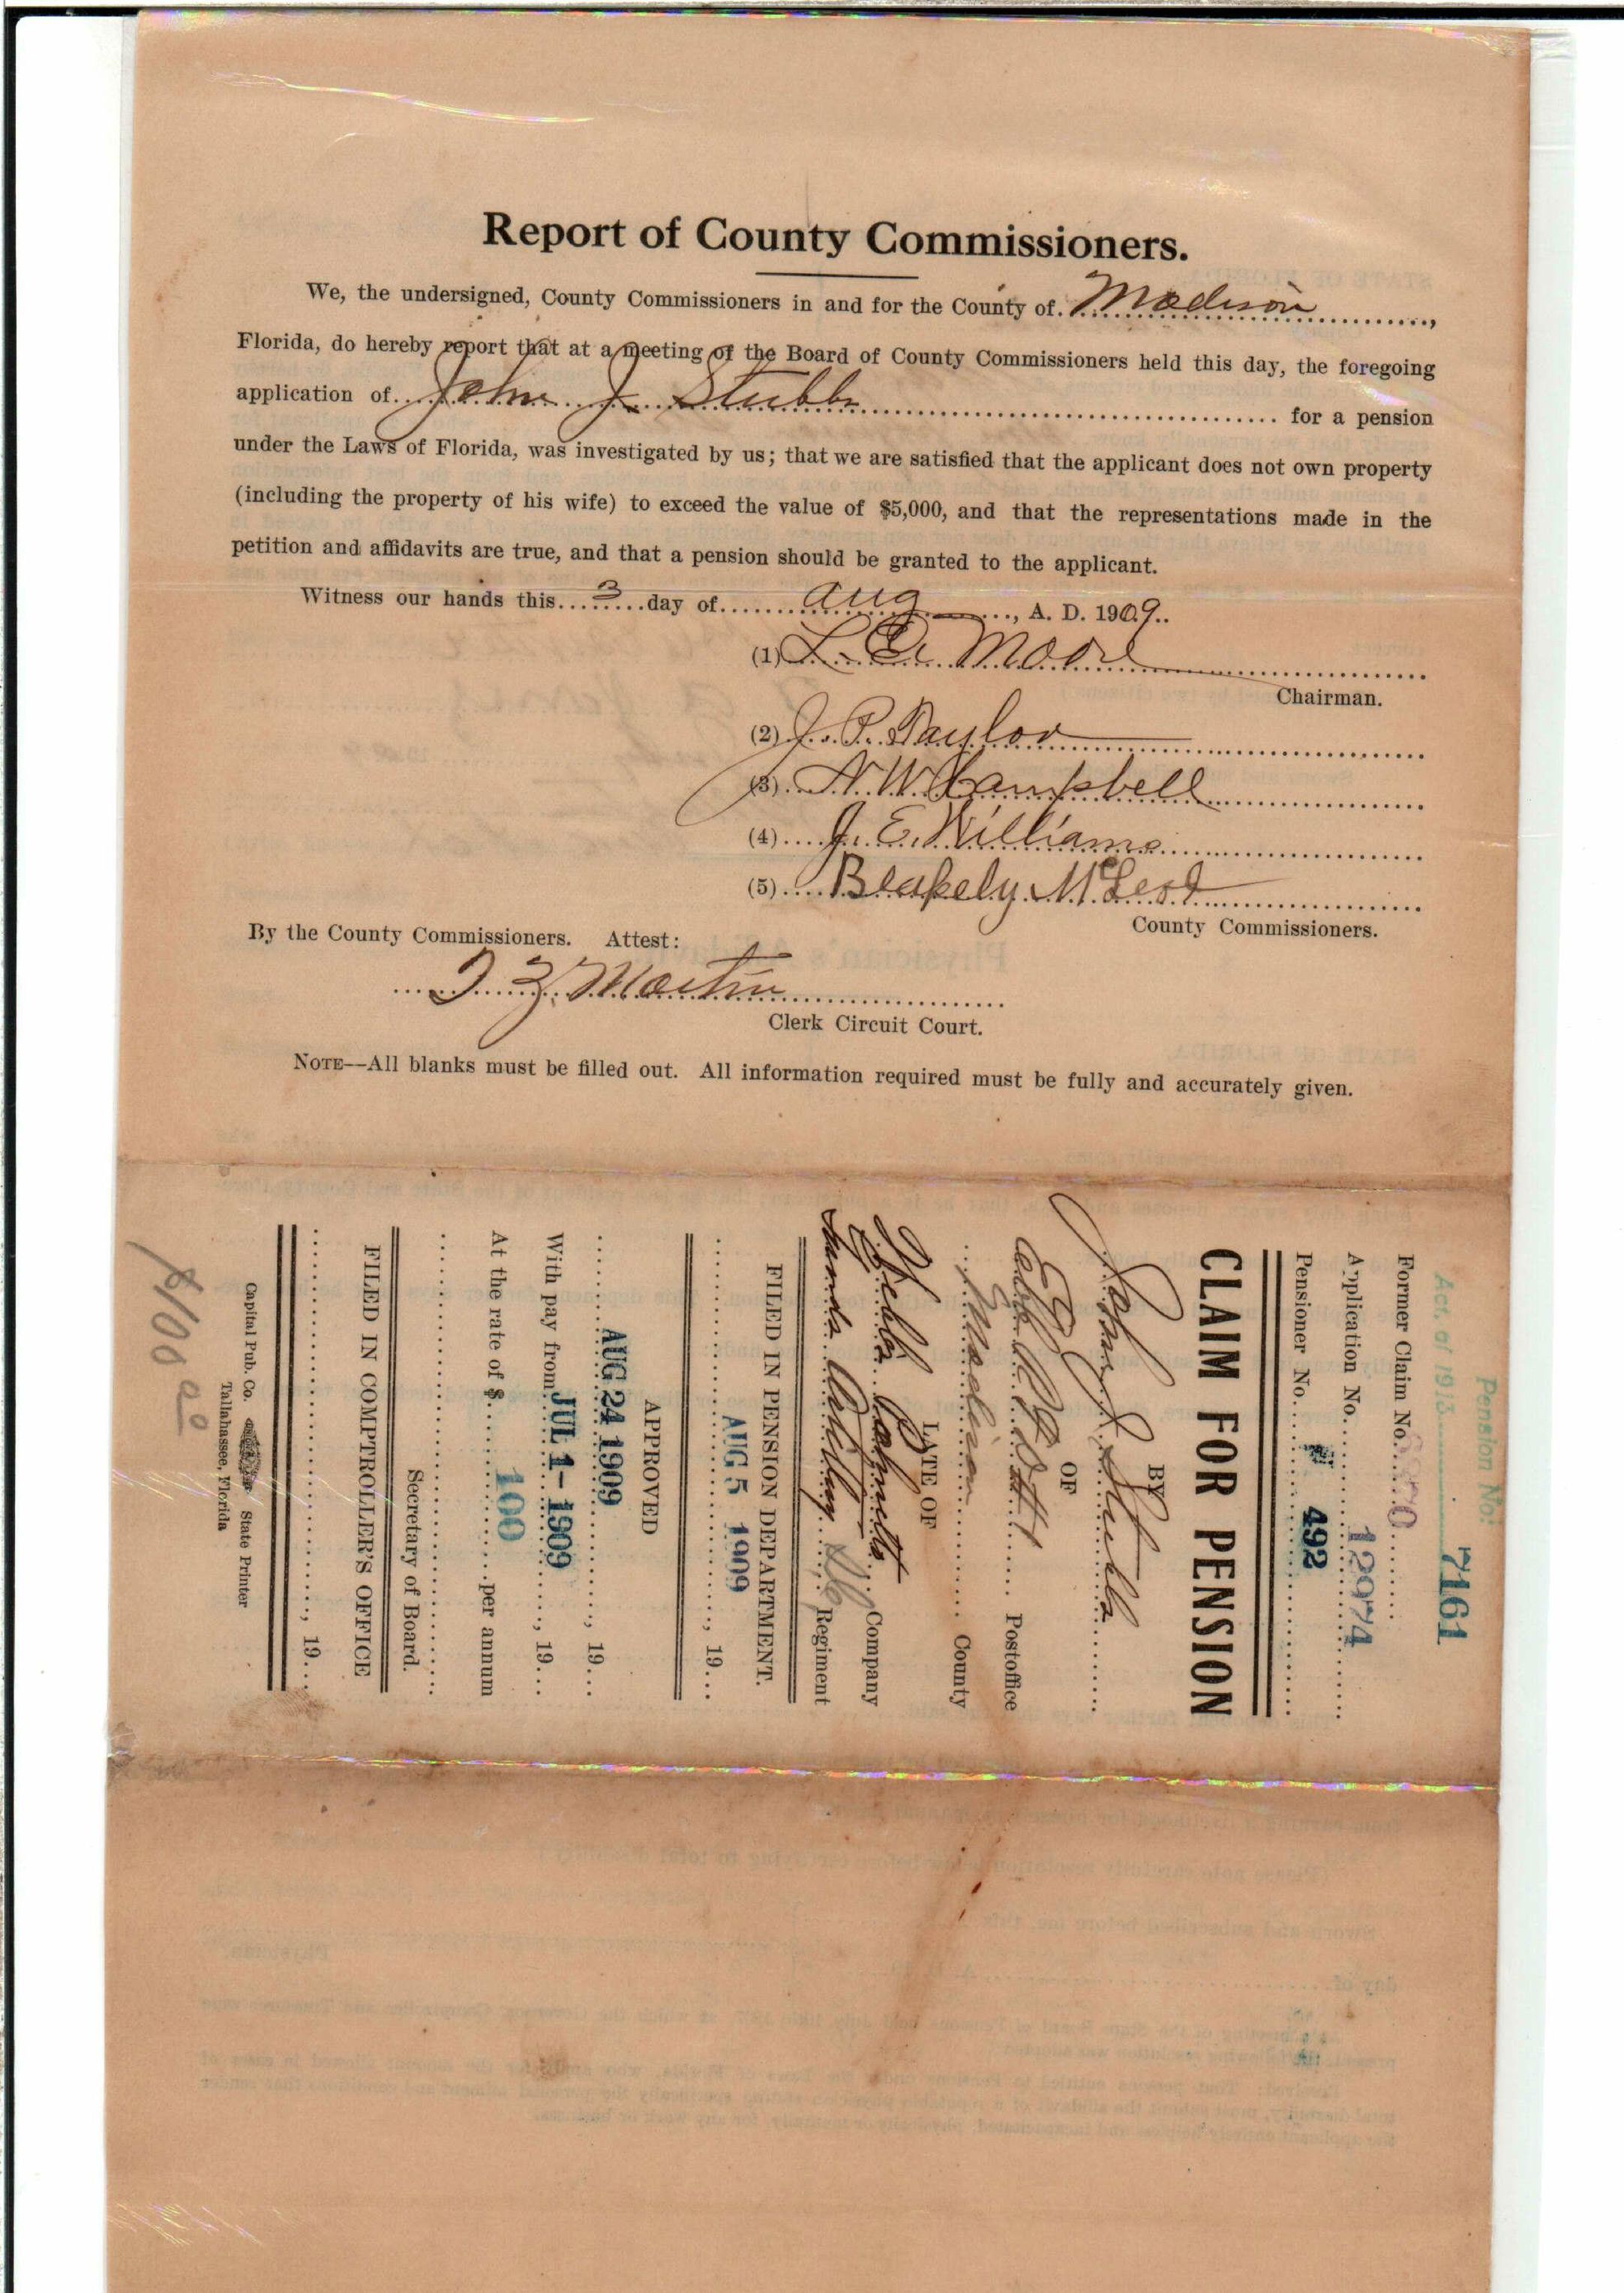 Report of County Commissioners.
We, the undersigned, County Commissioners in and for the County of. Madison ,
Florida, do hereby report that at a meeting of the Board of County Commissioners held this day, the foregoing
application of John J Stubbs for a pension
under the Laws of Florida, was investigated by us; that we are satisfied that the applicant does not own property
(including the property of his wife) to exceed the value of $5,000, and that the representations made in the
petition and affidavits are true, and that a pension should be granted to the applicant.
Witness our hands this 3 day of Aug , A. D. 1909..
(1) L. E. Moore
Chairman.
(2) J. P. Taylor
(3) N. W. Campbell
(4) J. E. Williams
(5) Blakely McLeod
County Commissioners.
By the County Commissioners. Attest:
Martin
Clerk Circuit Court.
NOTE--All blanks must be filled out. All information required must be fully and accurately given.
Pension No:
Act. of 1913 7161
Former Claim No.
Application No. 12974
Pensioner No. 492
CLAIM FOR PENSION
BY
John J Stubbs
OF
Postoffice
Madison County
LATE OF
Palmetto Company
Artilury Regiment
FILED IN PENSION DEPARTMENT.
AUG 5 1909 , 19
APPROVED
AUG 24 1909 , 19
With pay from JUL 1- 1909 , 19
At the rate of $ 100 per annum
Secretary of Board.
FILED IN COMPTROLLER'S OFFICE
, 19
Capital Pub. Co. State Printer
Tallahassee, Florida
$100 00